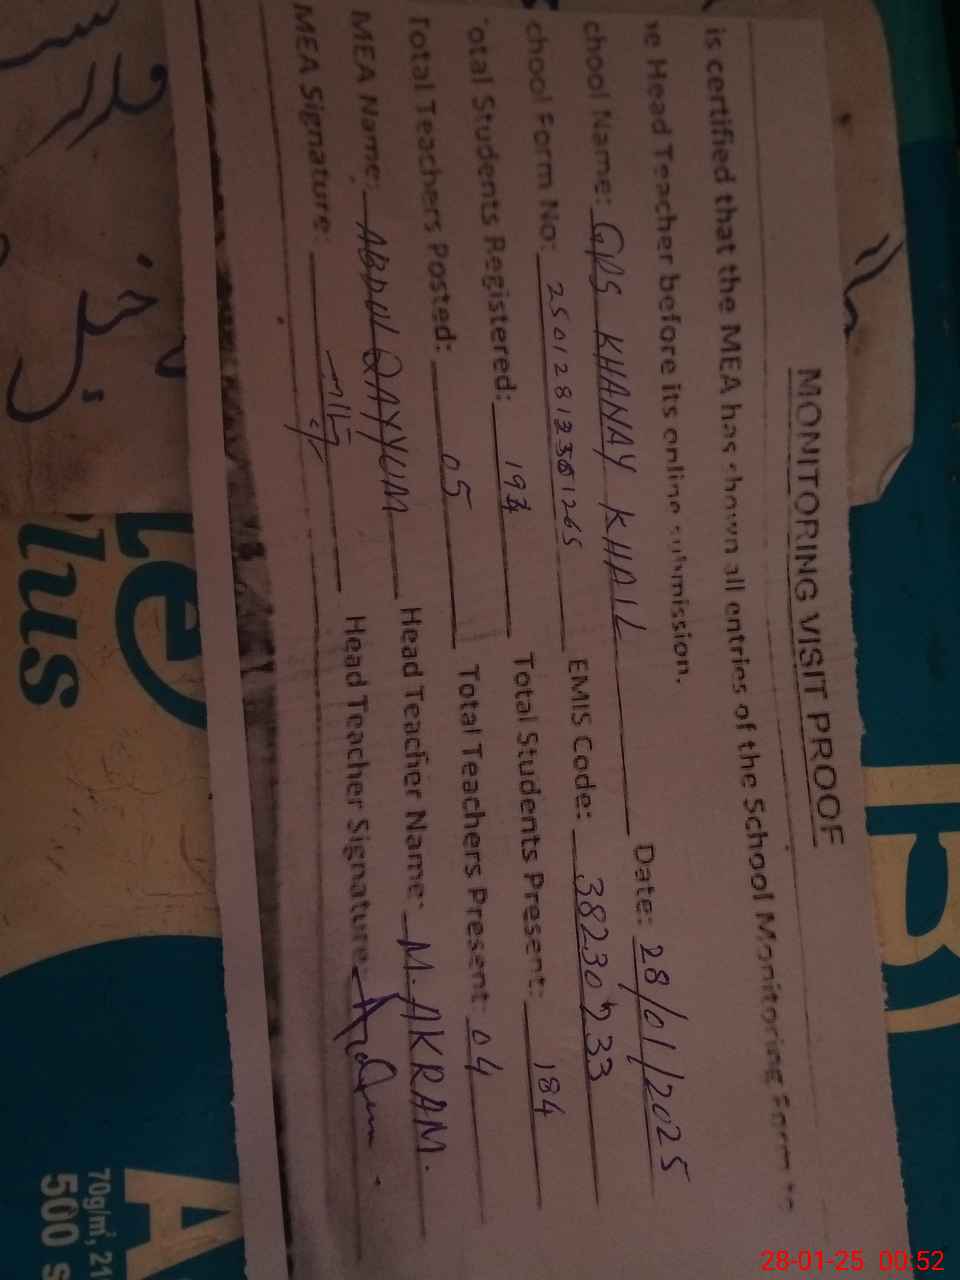 MONITORING VISIT PROOF
is certified that the MEA has shown all entries of the School Monitoring Form to
he Head Teacher before its online submission.
chool Name: GPS KHANAY KHAIL Date: 28/01/2025
chool Form No: EMIS Code:
otal Students Registered: Total Students Present: 184
Total Teachers Posted: 05 Total Teachers Present: 04
MEA Name: ABDUL QAYYUM Head Teacher Name: M. AKRAM.
MEA Signature: Head Teacher Signature:
lus
70g/m², 21
500 s
28-01-25 00:52